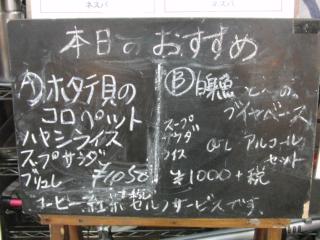 本日のおすすめ
Ⓐホタテ貝の
コロペット
ハヤシライス
スープサラダ
ブリュレ ¥1050
Ⓑ白身魚
ブイヤベース
スープ
サラダ
ライス
or アルコール
セット
¥1000+税
コーヒー紅茶セルフサービスです。